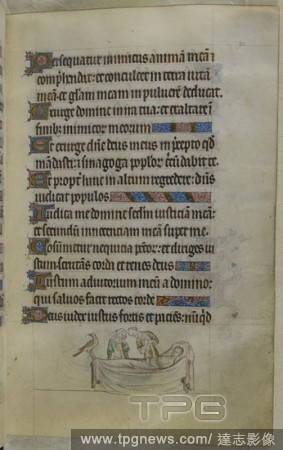 Persequatur inimicus animam meā ⁊
comp̄hendat: et conculcet in terra vitā
meā et glām meam in puluerē deducat.
Exurge domine in ira tua: et exaltare ī
finib; inimicor meorum
Et exurge dñe deus meus in p̄cepto qđ
mandasti: ⁊ sinagoga populor c̄cūdabit te.
Et propt hanc in altum regredere: dn̄s
iudicat populos
Iudica me domine scđm iusticiam meā:
et scđm innocenciam meā super me.
Cōsumetur nequicia pctōr: et diriges iu
stum scrutans corda et renes deus
Iustum adiutorium meū a domino:
qui saluos facit rectos corde
Deus iudex iustus fortis et paciēs: nūqđ
TPG
www.tpgnews.com/ 達志影像